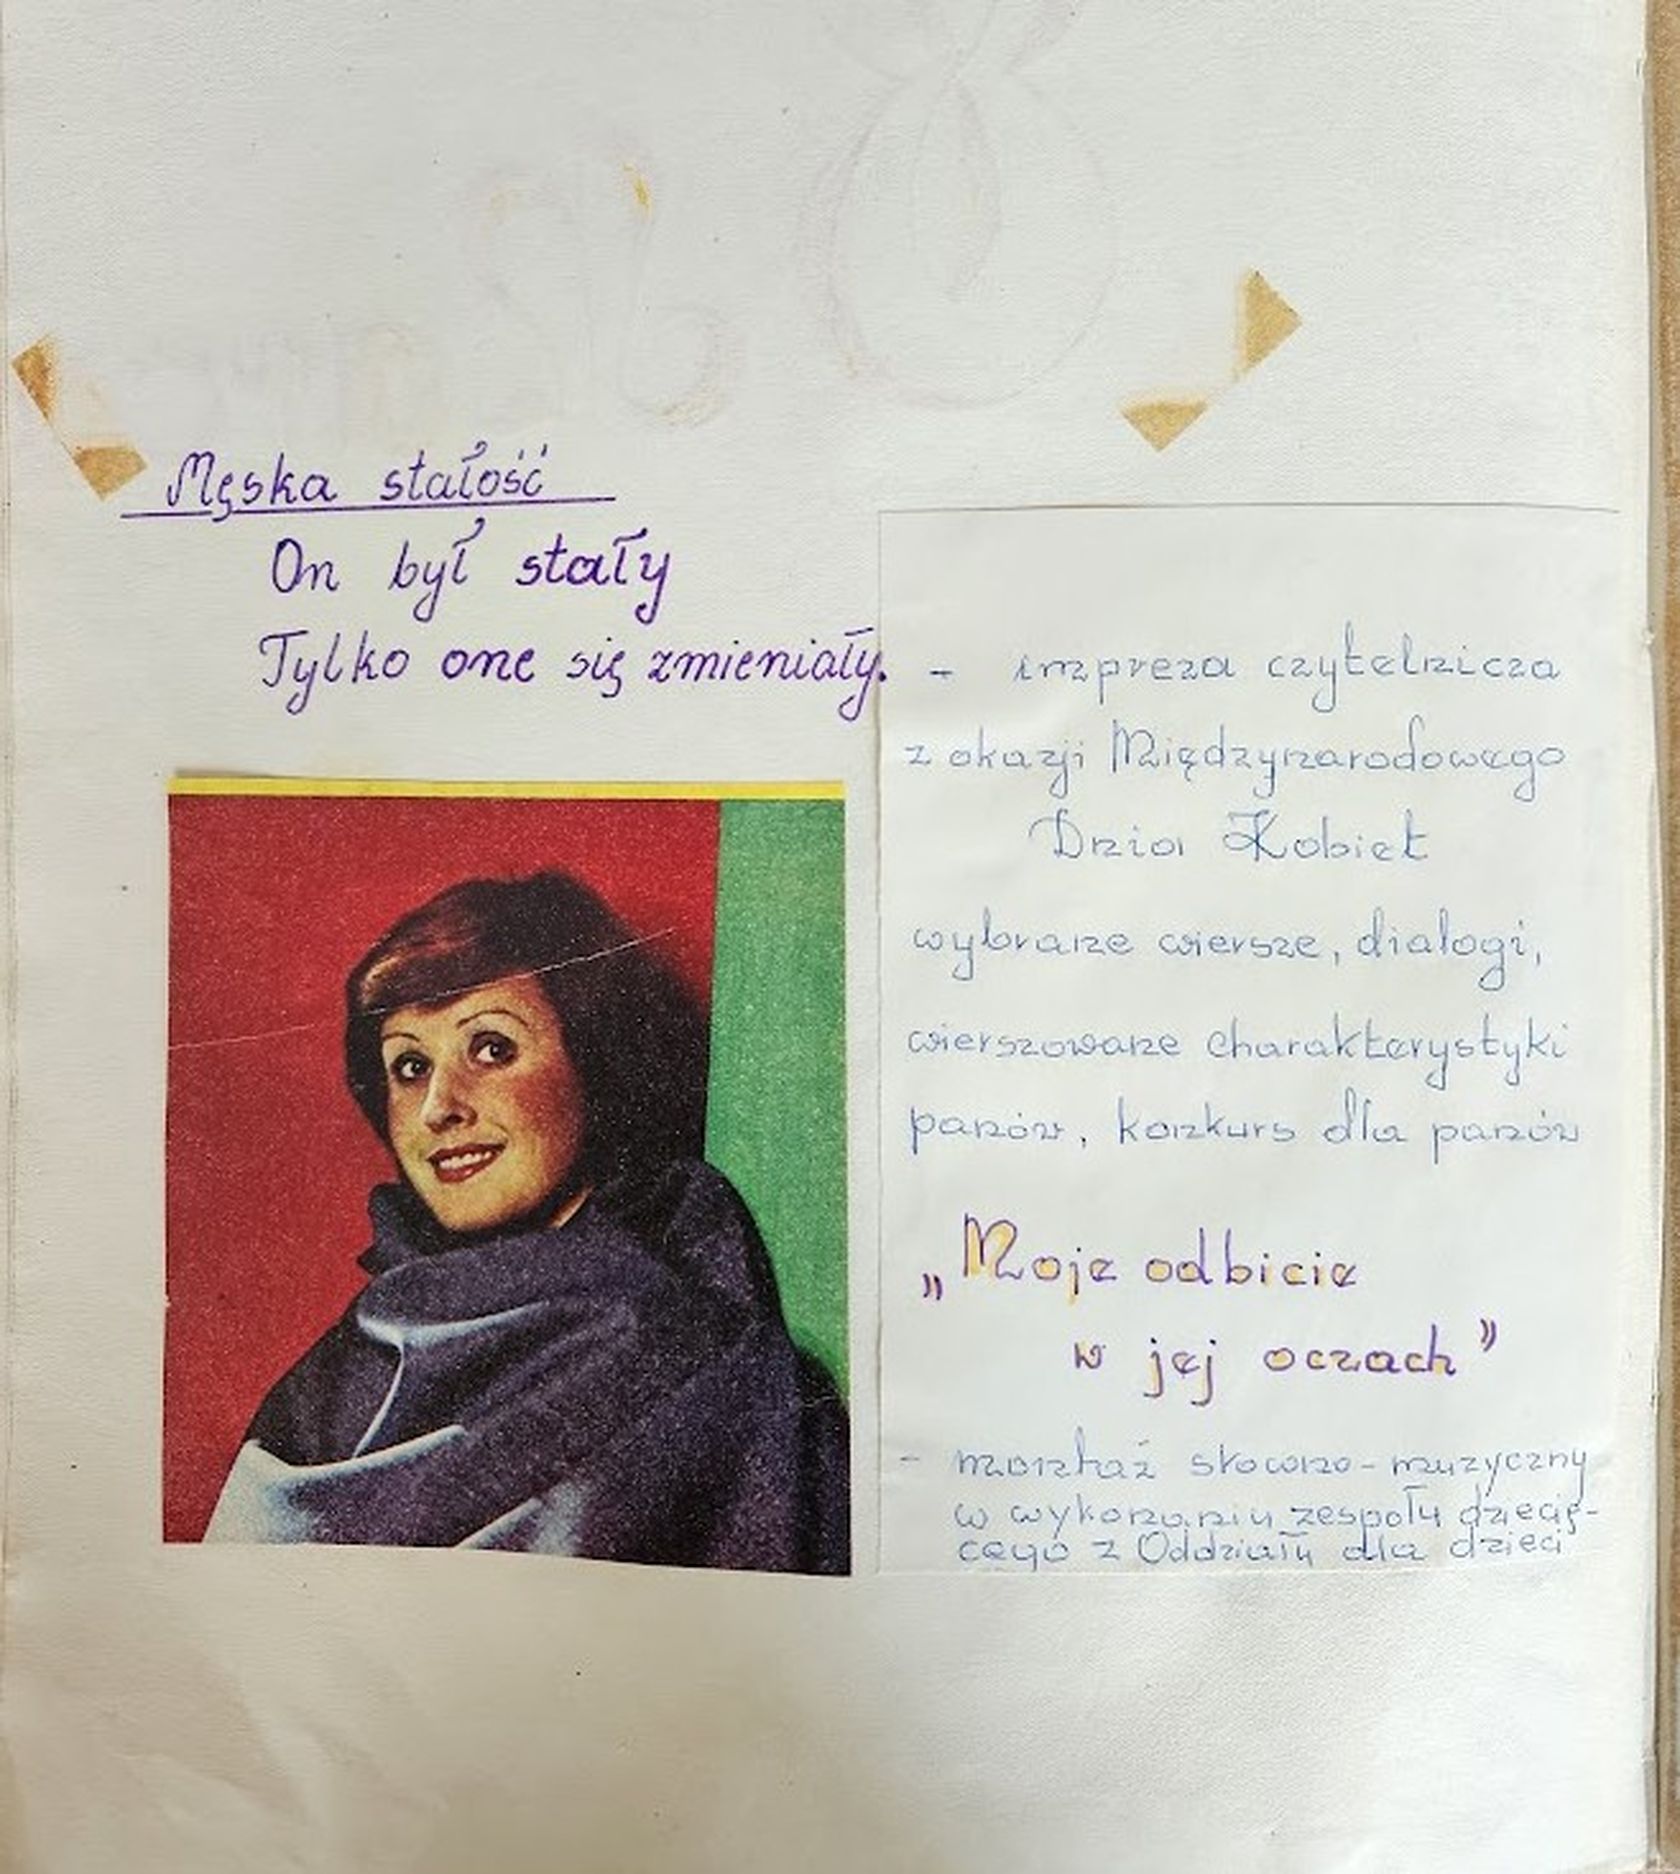 Męska stałość
On był stały
Tylko one się zmieniały.
- impreza czytelnicza
z okazji Międzynarodowego
Dnia Kobiet
wybrane wiersze, dialogi,
wierszowane charakterystyki
panów, konkurs dla panów
„Moje odbicie
w jej oczach”
- montaż słowno-muzyczny
w wykonaniu zespołu dziecię-
cego z Oddziału dla dzieci